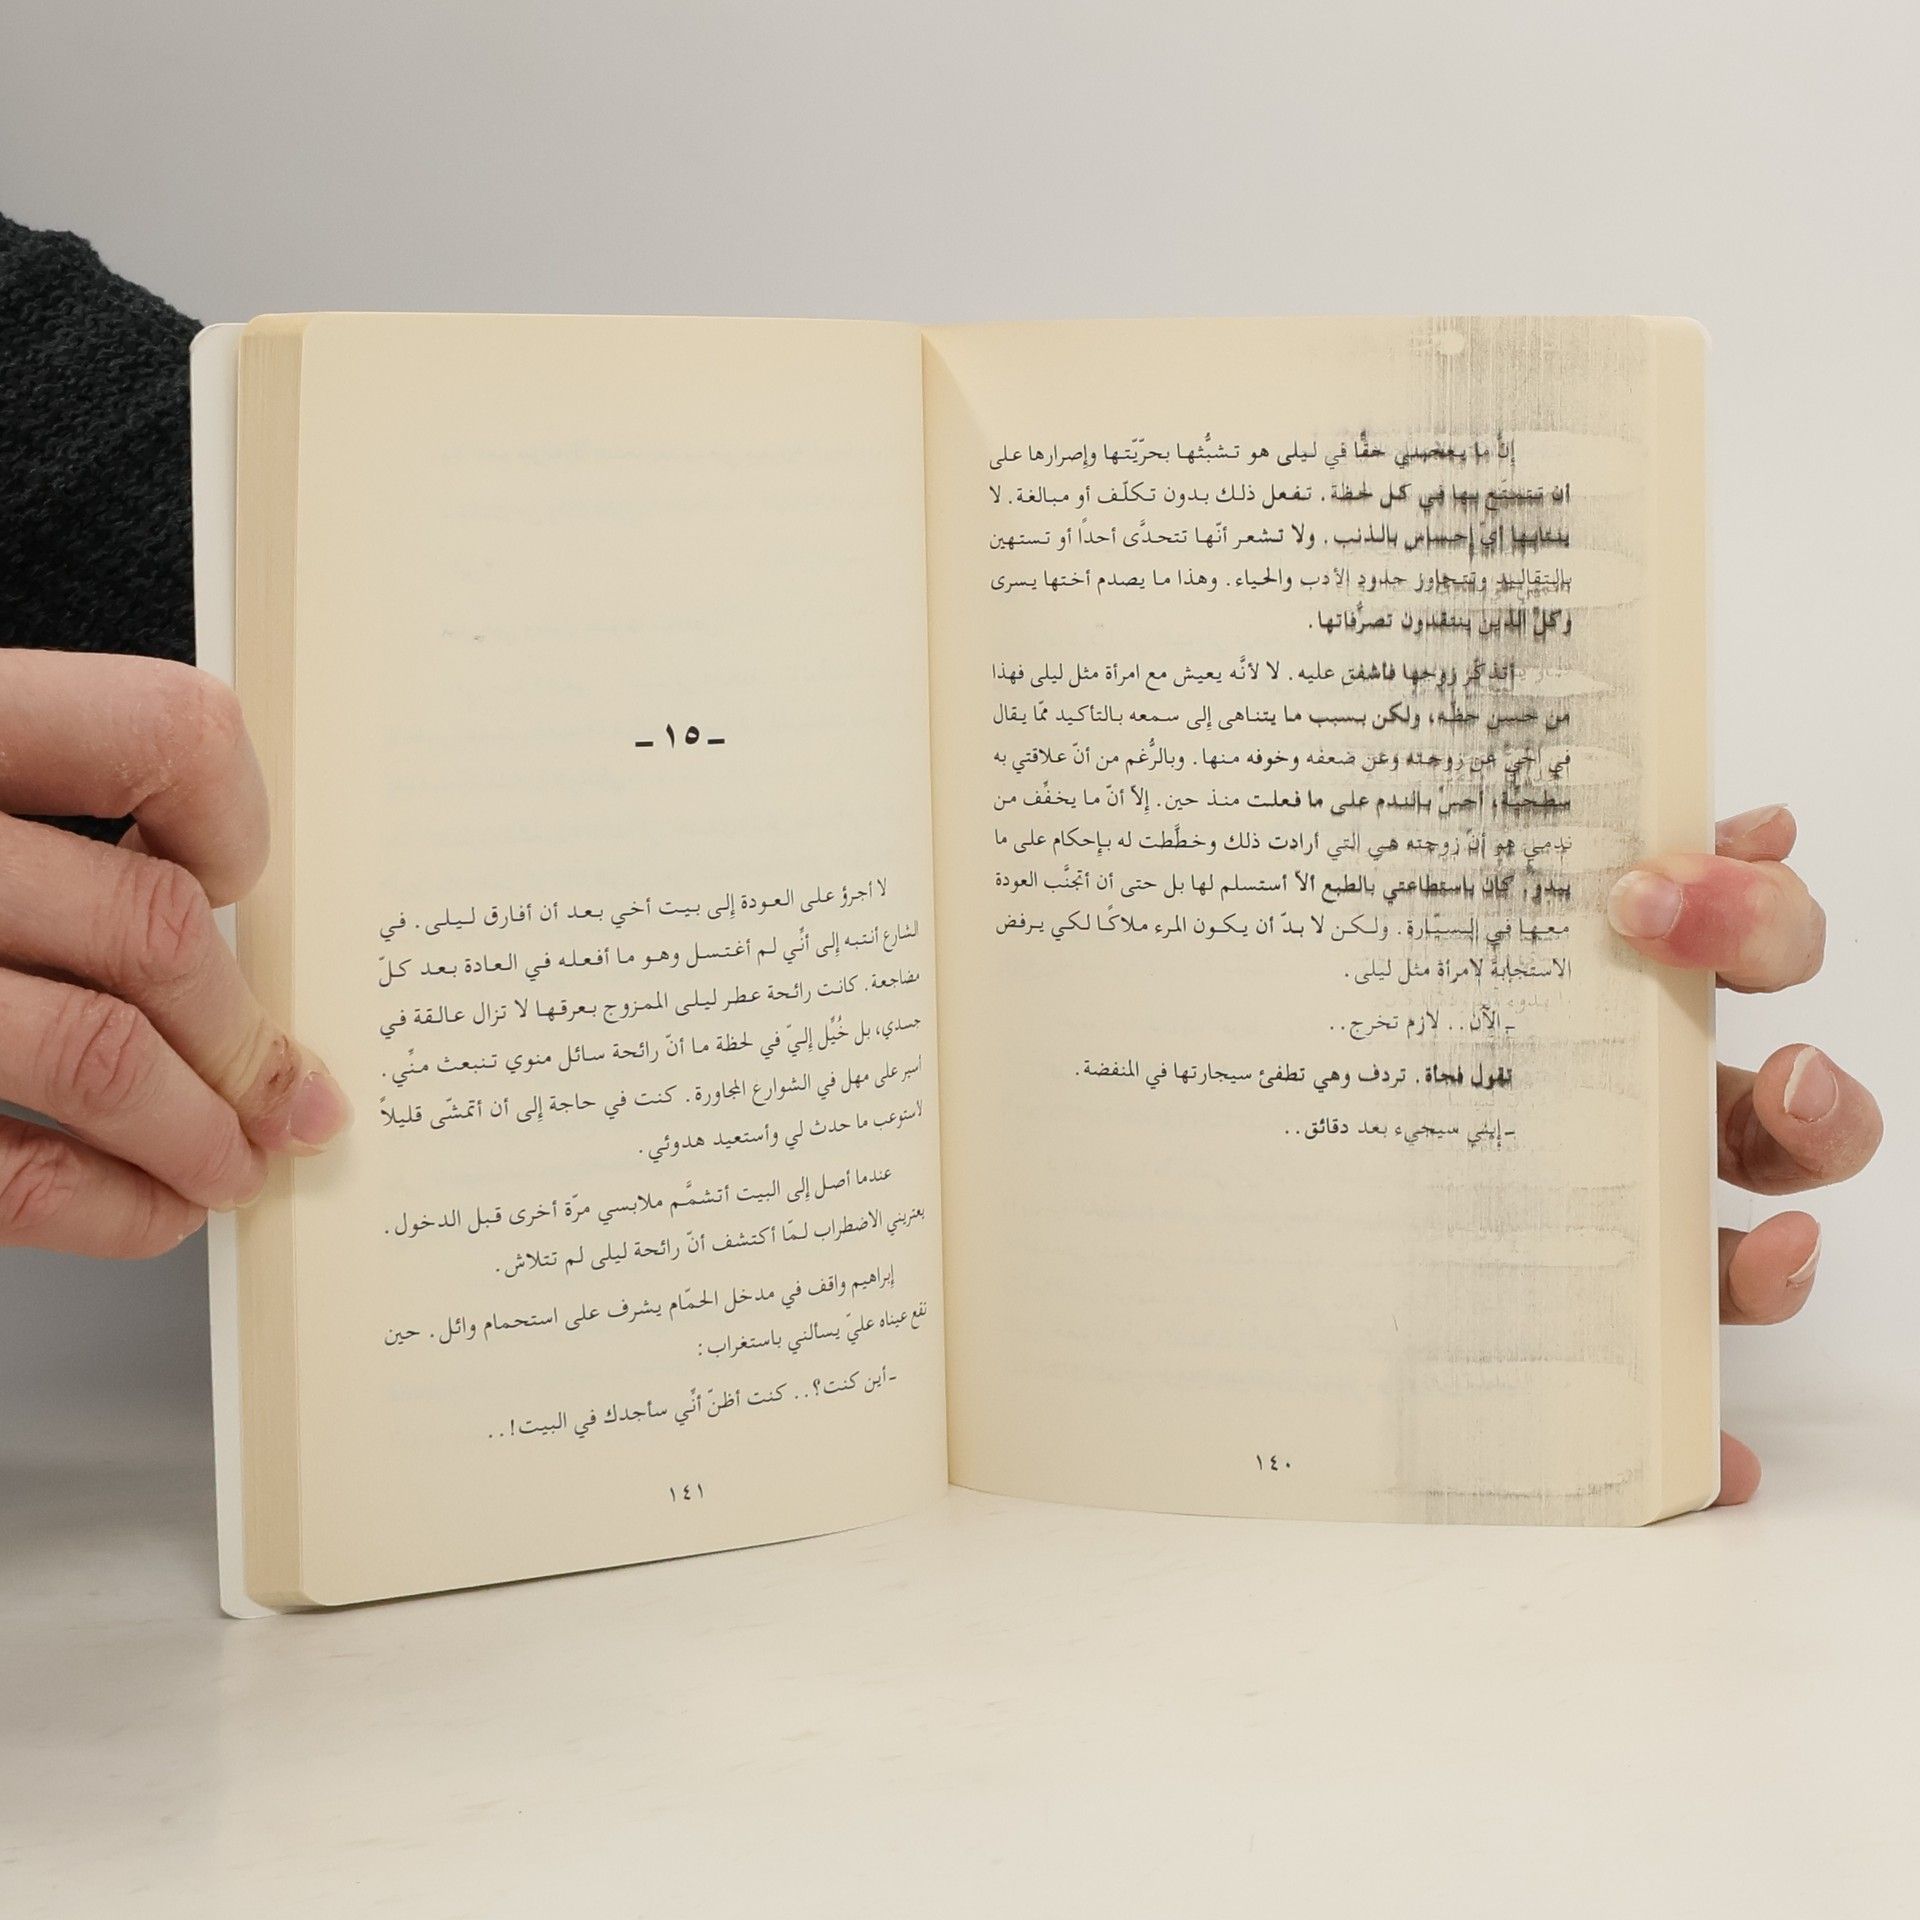 إنَّ ما يعجبني حقًّا في ليلى هو تشبُّثها بحرّيّتها وإصرارها على
أن تتمتّع بها في كل لحظة. تفعل ذلك بدون تكلّف أو مبالغة. لا
ينتابها أيّ إحساس بالذنب. ولا تشعر أنّها تتحدَّى أحداً أو تستهين
بالتقاليد وتتجاوز حدود الأدب والحياء. وهذا ما يصدم أختها يسرى
وكلّ الذين ينتقدون تصرُّفاتها.
أتذكّر زوجها فأشفق عليه. لا لأنَّه يعيش مع امرأة مثل ليلى فهذا
من حسن حظّه، ولكن بسبب ما يتناهى إلى سمعه بالتأكيد ممّا يقال
في الحيّ عن زوجته وعن ضعفه وخوفه منها. وبالرُّغم من أنّ علاقتي به
سطحيّة، أحسّ بالندم على ما فعلت منذ حين. إلاّ أنّ ما يخفِّف من
ندمي هو أنّ زوجته هي التي أرادت ذلك وخطَّطت له بإحكام على ما
يبدو. كان باستطاعتي بالطبع ألاّ أستسلم لها بل حتى أن أتجنَّب العودة
معها في السيّارة. ولكن لا بدّ أن يكون المرء ملاكًا لكي يرفض
الاستجابة لامرأة مثل ليلى.
ـ الآن.. لازم تخرج..
تقول فجأة. تردف وهي تطفئ سيجارتها في المنفضة.
ـ إبني سيجيء بعد دقائق..
١٤٠
ـ ١٥ ـ
لا أجرؤ على العودة إلى بيت أخي بعد أن أفارق ليلى. في
الشارع أنتبه إلى أنِّي لم أغتسل وهو ما أفعله في العادة بعد كلّ
مضاجعة. كانت رائحة عطر ليلى الممزوج بعرقها لا تزال عالقة في
جسدي، بل خُيِّل إليّ في لحظة ما أنّ رائحة سائل منوي تنبعث منِّي.
أسير على مهل في الشوارع المجاورة. كنت في حاجة إلى أن أتمشّى قليلاً
لأستوعب ما حدث لي وأستعيد هدوئي.
عندما أصل إلى البيت أتشمَّم ملابسي مرّة أخرى قبل الدخول.
يعتريني الاضطراب لمّا أكتشف أنّ رائحة ليلى لم تتلاش.
إبراهيم واقف في مدخل الحمّام يشرف على استحمام وائل. حين
تقع عيناه عليّ يسألني باستغراب:
ـ أين كنت؟.. كنت أظنّ أنِّي سأجدك في البيت!..
١٤١